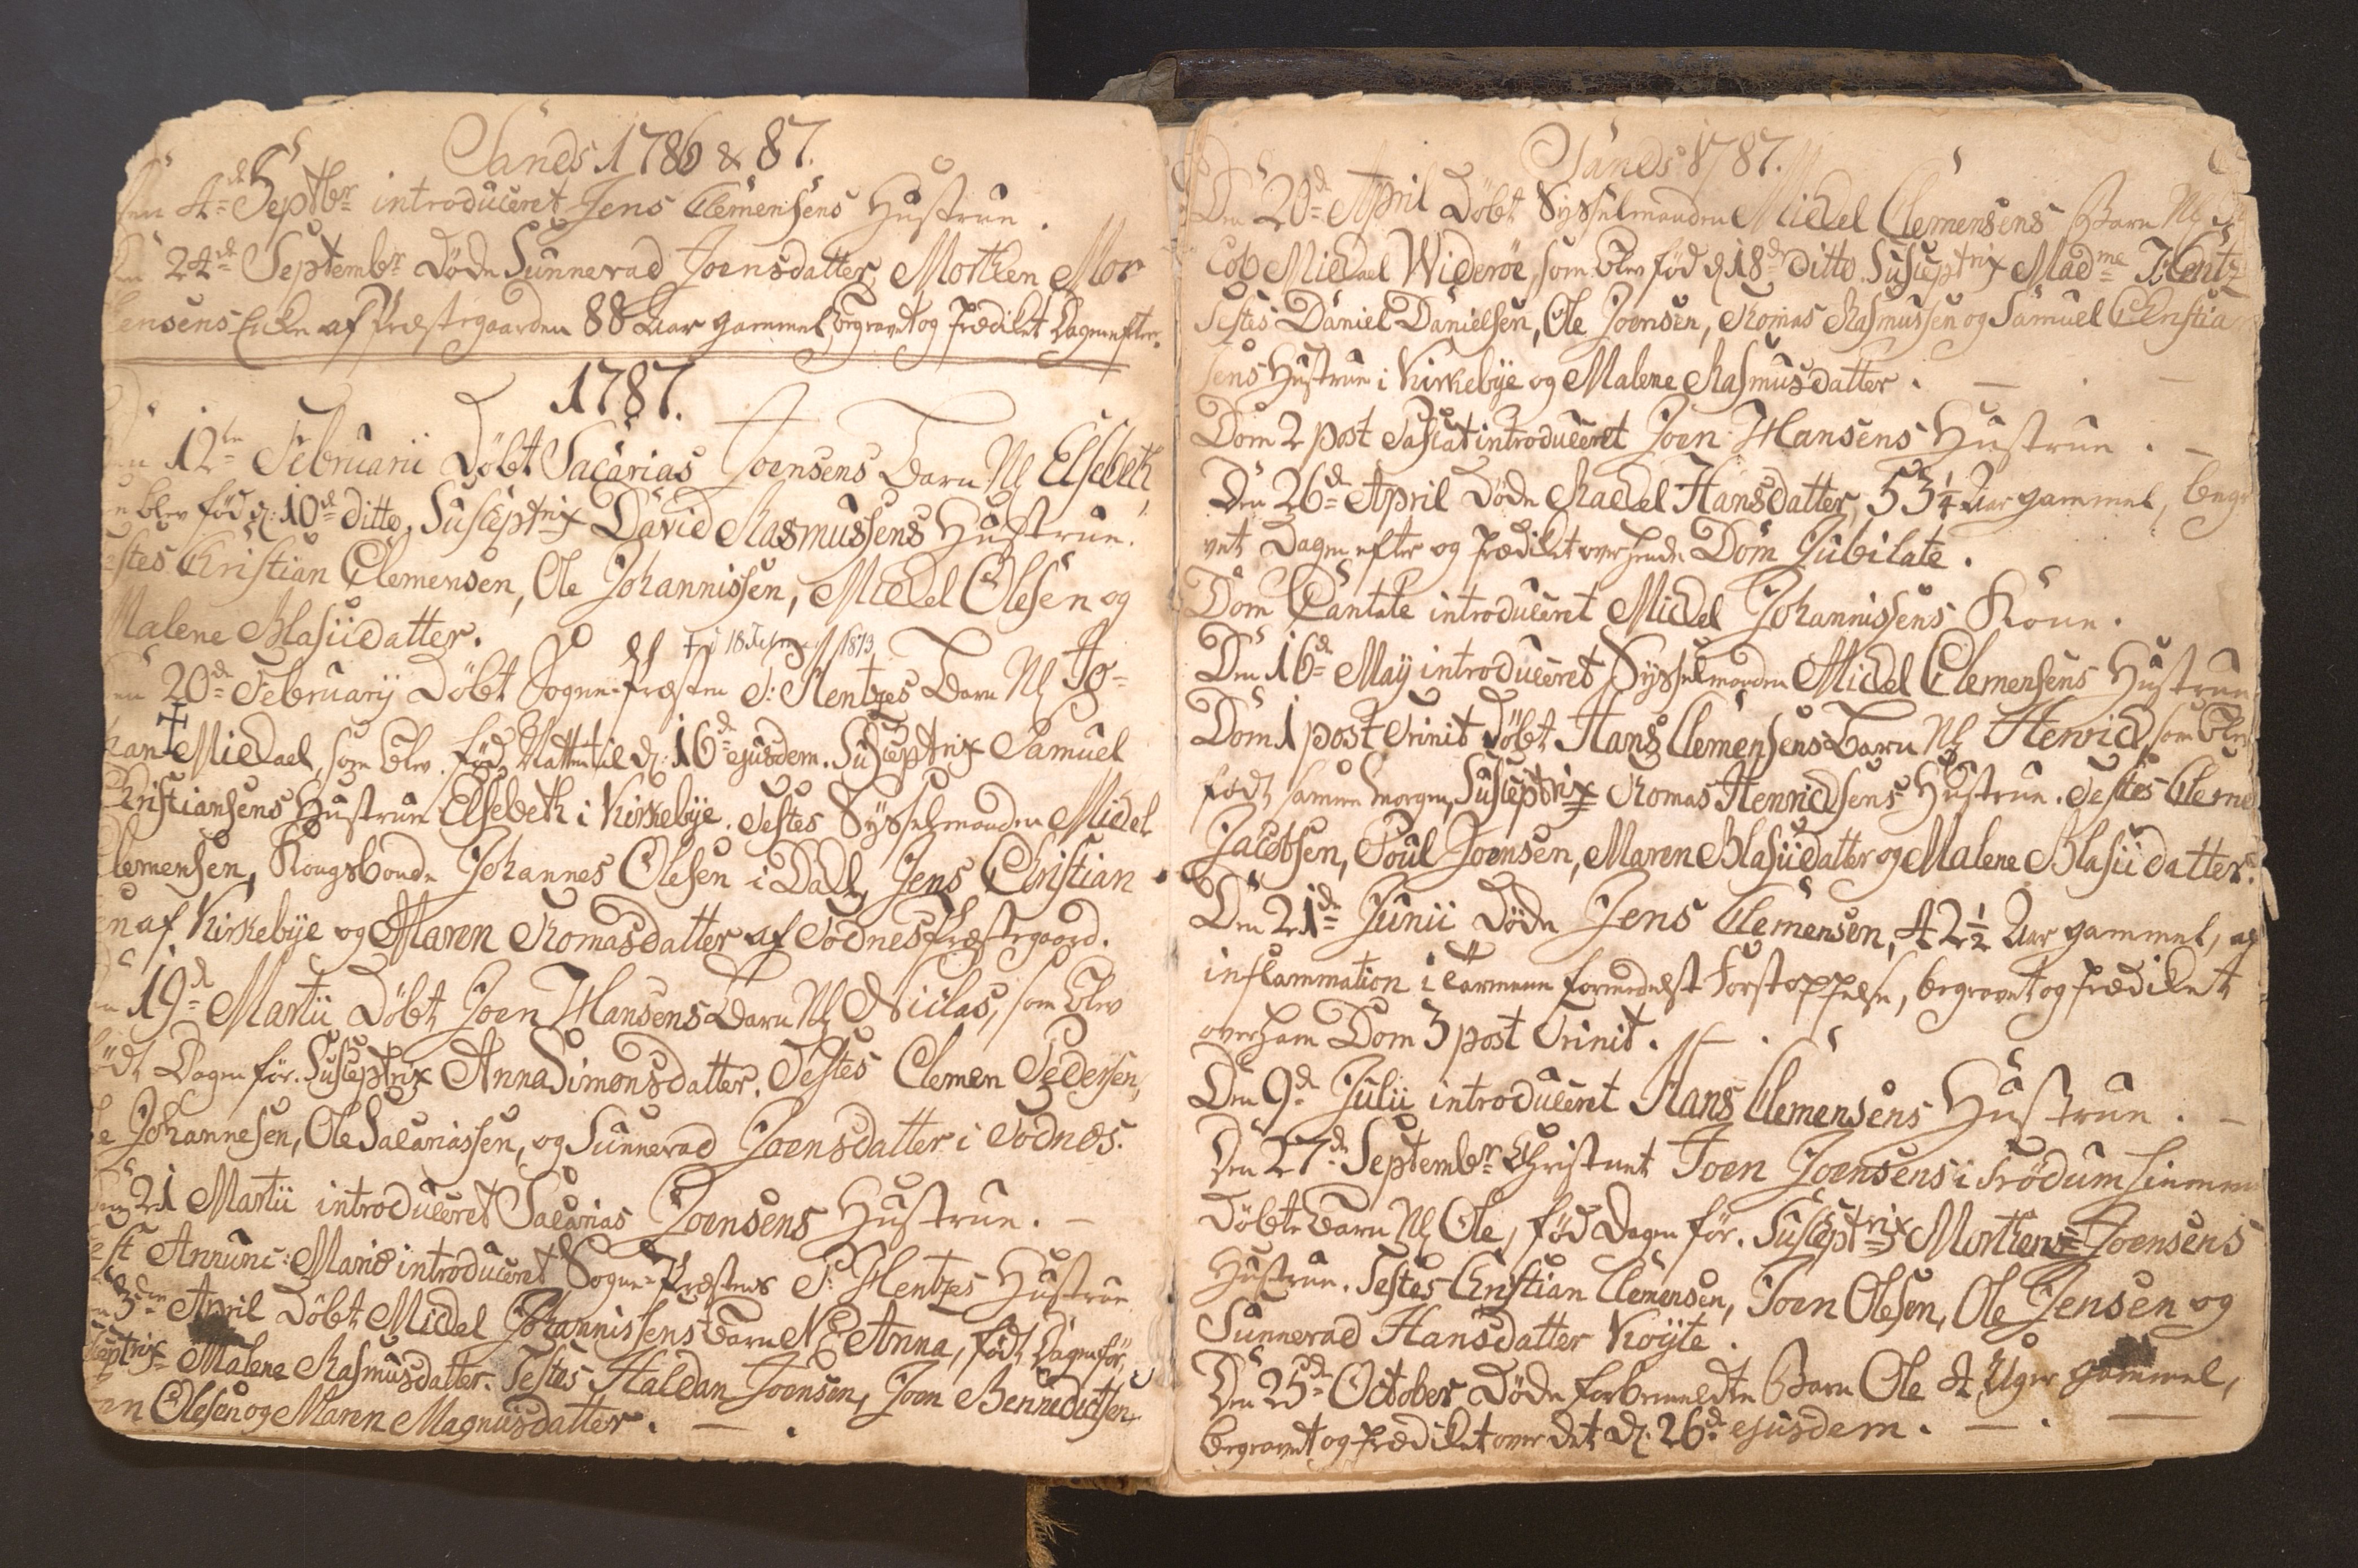 Sands 1786 & 87.
Den 4de Septbr introduceret Jens Clemensens Hustrue.
Den 24de Septembr Døde Sunnevad Joensdatter, Morthen Mor
tensens Enke af Præstegaarden 88 Aar gammel, begravet og Prædiket Dagen efter.
1787.
Den 12te Februarii Døbt Sacarias Joensens Barn Nl Elsebeth
som blev fød d: 10de ditto, Susceptrix David Rasmussens Hustrue.
Testes Christian Clemensen, Ole Johannissen, Mickel Olesen og
Malene Blasiidatter.
+ d 18 1873
Den 20de Februarij Døbt Sogne-Præsten P: Hentzes Barn Nl Jo-
han Mickael, som blev fød Natten til d: 16de ejusdem. Susceptrix Samuel
Christiansens Hustrue Elsebeth i Kirkebÿe. Testes Sÿsselmanden Mickel
Clemensen, Kongsbonde Johannes Olesen i Dall, Jens Christian
sen af Kirkebÿe og Maren Thomasdatter af Todnes Præstegaard.
Den 19de Martii Døbt Joen Hansens Barn Nl Niclas, som blev
født Dagen før. Susceptrix Anna Simonsdatter. Testes Clemen Pedersen,
Ole Johannesen, Ole Sacariassen, og Sunnevad Joensdatter i Todnes.
Den 21 Martii introduceret Sacarias Joensens Hustrue. –
Fest Annunc: Mariæ introduceret Sogne-Præstens P: Hentzes Hustrue
Den 3die April Døbt Mickel Johannissens Barn Nl Anna, født Dagen før,
Susceptrix Malene Rasmusdatter. Testes Haldan Joensen, Joen Benedictsen,
Olesen og Maren Magnusdatter. – .
Sands 1787.
Den 20de April Døbt Sÿsselmanden Mickel Clemensens Barn Nl Ja
cob Mickael Widerøe, som blev fød d. 18de ditto. Susceptrix Madme Hentz
Testes Daniel Danielsen, Ole Joensen, Thomas Rasmussen og Samuel Christian
sens Hustrue i Kirkebÿe og Malene Rasmusdatter. – . –
Dom 2 post Pascat introduceret Joen Hansens Hustrue. –
Den 26de April Døde Rachel Hansdatter, 53¼ Aar gammel, begra
vet Dagen efter og Prædiket over hende Dom Jubilate.
Dom Cantate introduceret Mickel Johannissens Kone.
Den 16de Maÿ introduceret Sÿsselmanden Mickel Clemensens Hustrue
Dom 1 post Trinit Døbt Hans Clemensens Barn Nl Henrick, som blev
født samme Morgen, Susceptrix Thomas Henricksens Hustrue. Testes Cleme
Jacobsen, Poul Joensen, Maren Blasiidatter og Malene Blasiidatter.
Den 21de Junii Døde Jens Clemensen, 42½ Aar gammel, af
inflammation i Tarmene formedelst Forstoppelse, begravet og Prædiket
over ham Dom 3 post Trinit. – .
Den 9de Julii introduceret Hans Clemensens Hustrue. –
Den 27de Septembr Christnet Joen Joensens i Frødum hiemme
døbte Barn Nl Ole, fød Dagen før. Susceptrix Morthen Joensens
Hustrue. Testes Christian Clemensen, Joen Olesen, Ole Jensen og
Sunnevad Hansdatter Køyte.
Den 25de October Døde forbemeldte Barn Ole 4 Uger gammel,
begravet og Prædiket over det d. 26de ejusdem. – . –